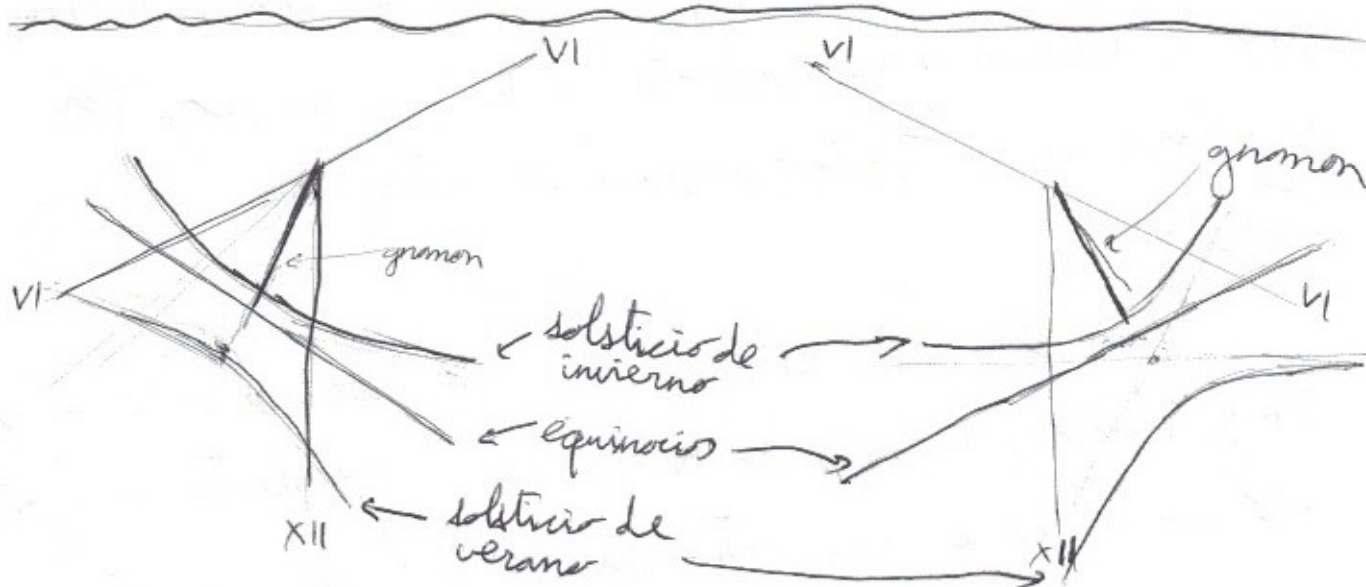 VI
VI
gnomon
gnomon
VI
VI
solsticio de
invierno
equinocios
solsticio de
verano
XII
XII